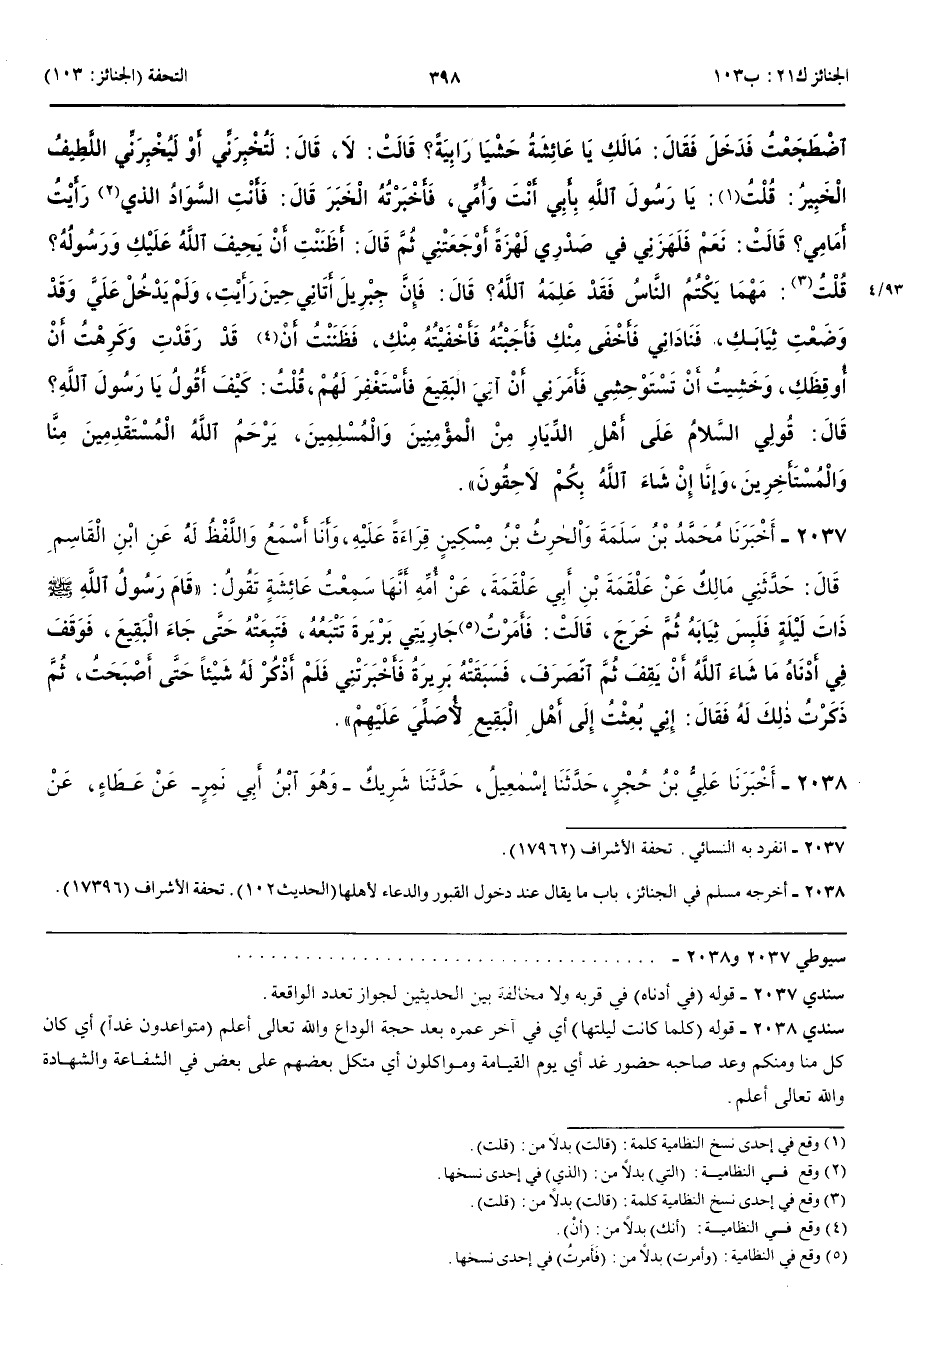 الجنائز ك٢١: ب١٠٣
٣٩٨
التحفة (الجنائز: ١٠٣)
ٱضْطَجَعْتُ فَدَخَلَ فَقَالَ: مَالَكِ يَا عَائِشَةُ حَشْيَا رَابِيَةً؟ قَالَتْ: لَا، قَالَ: لَتُخْبِرَنِّي أَوْ لَيُخْبِرَنِّي اللَّطِيفُ
الْخَبِيرُ: قُلْتُ(١): يَا رَسُولَ اللَّهِ بِأَبِي أَنْتَ وَأُمِّي، فَأَخْبَرْتُهُ الْخَبَرَ قَالَ: فَأَنْتِ السَّوَادُ الذي(٢) رَأَيْتُ
أَمَامِي؟ قَالَتْ: نَعَمْ فَلَهَزَنِي في صَدْرِي لَهْزَةً أَوْجَعَتْنِي ثُمَّ قَالَ: أَظَنَنْتِ أَنْ يَحِيفَ ٱللَّهُ عَلَيْكِ وَرَسُولُهُ؟
قُلْتُ(٣): مَهْمَا يَكْتُمُ النَّاسُ فَقَدْ عَلِمَهُ ٱللَّهُ؟ قَالَ: فَإِنَّ جِبْرِيلَ أَتَانِي حِينَ رَأَيْتِ، وَلَمْ يَدْخُلْ عَلَيَّ وَقَدْ
٤/٩٣
وَضَعْتِ ثِيَابَكِ، فَنَادَانِي فَأَخْفَى مِنْكِ فَأَجَبْتُهُ فَأَخْفَيْتُهُ مِنْكِ، فَظَنَنْتُ أَنْ(٤) قَدْ رَقَدْتِ وَكَرِهْتُ أَنْ
أُوقِظَكِ، وَخَشِيتُ أَنْ تَسْتَوْحِشِي فَأَمَرَنِي أَنْ آتِيَ الْبَقِيعَ فَأَسْتَغْفِرَ لَهُمْ، قُلْتُ: كَيْفَ أَقُولُ يَا رَسُولَ ٱللَّهِ؟
قَالَ: قُولِي السَّلَامُ عَلَى أَهْلِ الدِّيَارِ مِنْ الْمؤْمِنِينَ وَالْمُسْلِمِينَ، يَرْحَمُ ٱللَّهُ الْمُسْتَقْدِمِينَ مِنَّا
وَالْمُسْتَأْخِرِينَ، وَإِنَّا إِنْ شَاءَ ٱللَّهُ بِكُمْ لَاحِقُونَ».
٢٠٣٧ ـ أَخْبَرَنَا مُحَمَّدُ بْنُ سَلَمَةَ وَالْحٰرِثُ بْنُ مِسْكِينٍ قِرَاءَةً عَلَيْهِ، وَأَنَا أَسْمَعُ وَاللَّفْظُ لَهُ عَنِ ابْنِ الْقَاسِمِ
قَالَ: حَدَّثَنِي مَالِكٌ عَنْ عَلْقَمَةَ بْنِ أَبِي عَلْقَمَةَ، عَنْ أُمِّهِ أَنَّهَا سَمِعَتْ عَائِشَةَ تَقُولُ: «قَامَ رَسُولُ ٱللَّهِ ﷺ
ذَاتَ لَيْلَةٍ فَلَبِسَ ثِيَابَهُ ثُمَّ خَرَجَ، قَالَتْ: فَأَمَرْتُ(٥)جَارِيَتِي بَرِيْرَةَ تَتْبَعُهُ، فَتَبِعَتْهُ حَتَّى جَاءَ الْبَقِيعَ، فَوَقَفَ
فِي أَدْنَاهُ مَا شَاءَ ٱللَّهُ أَنْ يَقِفَ ثُمَّ ٱنْصَرَفَ، فَسَبَقَتْهُ بَرِيرَةُ فَأَخْبَرَتْنِي فَلَمْ أَذْكُرْ لَهُ شَيْئاً حَتَّى أَصْبَحَتُ، ثُمَّ
ذَكَرْتُ ذٰلِكَ لَهُ فَقَالَ: إِنِي بُعِثْتُ إِلَى أَهْلِ الْبَقِيعِ لأُصَلِّيَ عَلَيْهِمْ».
٢٠٣٨ ـ أَخْبَرَنَا عَلِيُّ بْنُ حُجْرٍ، حَدَّثَنَا إِسْمٰعِيلُ، حَدَّثَنَا شَرِيكٌ ـ وَهُوَ ٱبْنُ أَبِي نَمِرٍـ عَنْ عَطَاءٍ، عَنْ
٢٠٣٧ ـ انفرد به النسائي. تحفة الأشراف (١٧٩٦٢).
٢٠٣٨ ـ أخرجه مسلم في الجنائز، باب ما يقال عند دخول القبور والدعاء لأهلها (الحديث ١٠٢). تحفة الأشراف (١٧٣٩٦).
سيوطي ٢٠٣٧ و٢٠٣٨ ـ . . . . . . . . . . . . . . . . . . . . . . . . . . . . . . . . . . . . . .
سندي ٢٠٣٧ ـ قوله (في أدناه) في قربه ولا مخالفة بين الحديثين لجواز تعدد الواقعة.
سندي ٢٠٣٨ ـ قوله (كلما كانت ليلتها) أي في آخر عمره بعد حجة الوداع والله تعالى أعلم (متواعدون غداً) أي كان
كل منا ومنكم وعد صاحبه حضور غد أي يوم القيامة ومواكلون أي متكل بعضهم على بعض في الشفاعة والشهادة
والله تعالى أعلم.
(١) وقع في إحدى نسخ النظامية كلمة: (قالت) بدلاً من: (قلت).
(٢) وقع في النظامية: (التي) بدلاً من: (الذي) في إحدى نسخها.
(٣) وقع في إحدى نسخ النظامية كلمة: (قالت) بدلاً من: (قلت).
(٤) وقع في النظامية: (أنك) بدلاً من: (أنْ).
(٥) وقع في النظامية: (وأمرت) بدلاً من: (فأمرتُ) في إحدى نسخها.